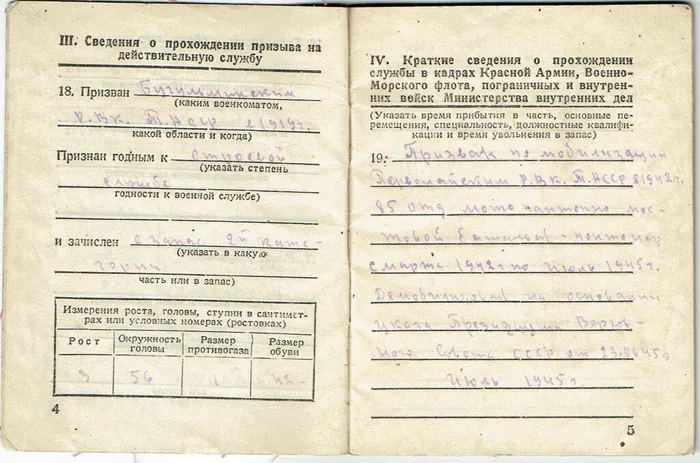 III. Сведения о прохождении призыва на
действительную службу
18. Призван Бугульминским
(каким военкоматом,
Р.В.К. Т.АССР в 1919г.
какой области и когда)
Признан годным к строевой
(указать степень
службе
годности к военной службе)
и зачислен в запас 2й кате-
(указать в какую
гории
часть или в запас)
Измерения роста, головы, ступни в сантимет-
рах или условных номерах (ростовках)
Рост Окружность головы Размер противогаза Размер обуви
3 56 1 42
4
IV. Краткие сведения о прохождении
службы в кадрах Красной Армии, Военно-
Морского флота, пограничных и внутрен-
них войск Министерства внутренних дел
(Указать время прибытия в часть, основные пе-
ремещения, специальность, должностные квалифи-
кации и время увольнения в запас)
19. Призван по мобилизации
Первомайским Р.В.К. Т.АССР в 1942г.
85 отд мото понтонно мос-
товой батальон - понтонер
с марта 1942г по Июль 1945г.
Демобилизован на основании
указа Президиума Верхов-
ного Совета СССР от 23.06.45г
Июль 1945г
5